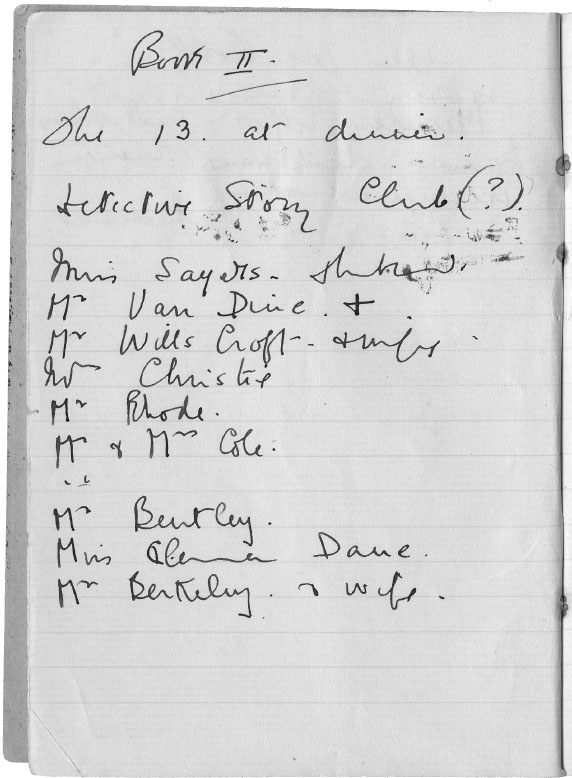 Book II.
The 13. at dinner.
Detective Story Club (?).
Miss Sayers - husband.
Mr Van Dine. +
Mr Wills Croft - + wife
Mrs Christie
Mr Rhode.
Mr & Mrs Cole.
Mr Bentley.
Miss Clemence Dane.
Mr Berkeley. & wife.